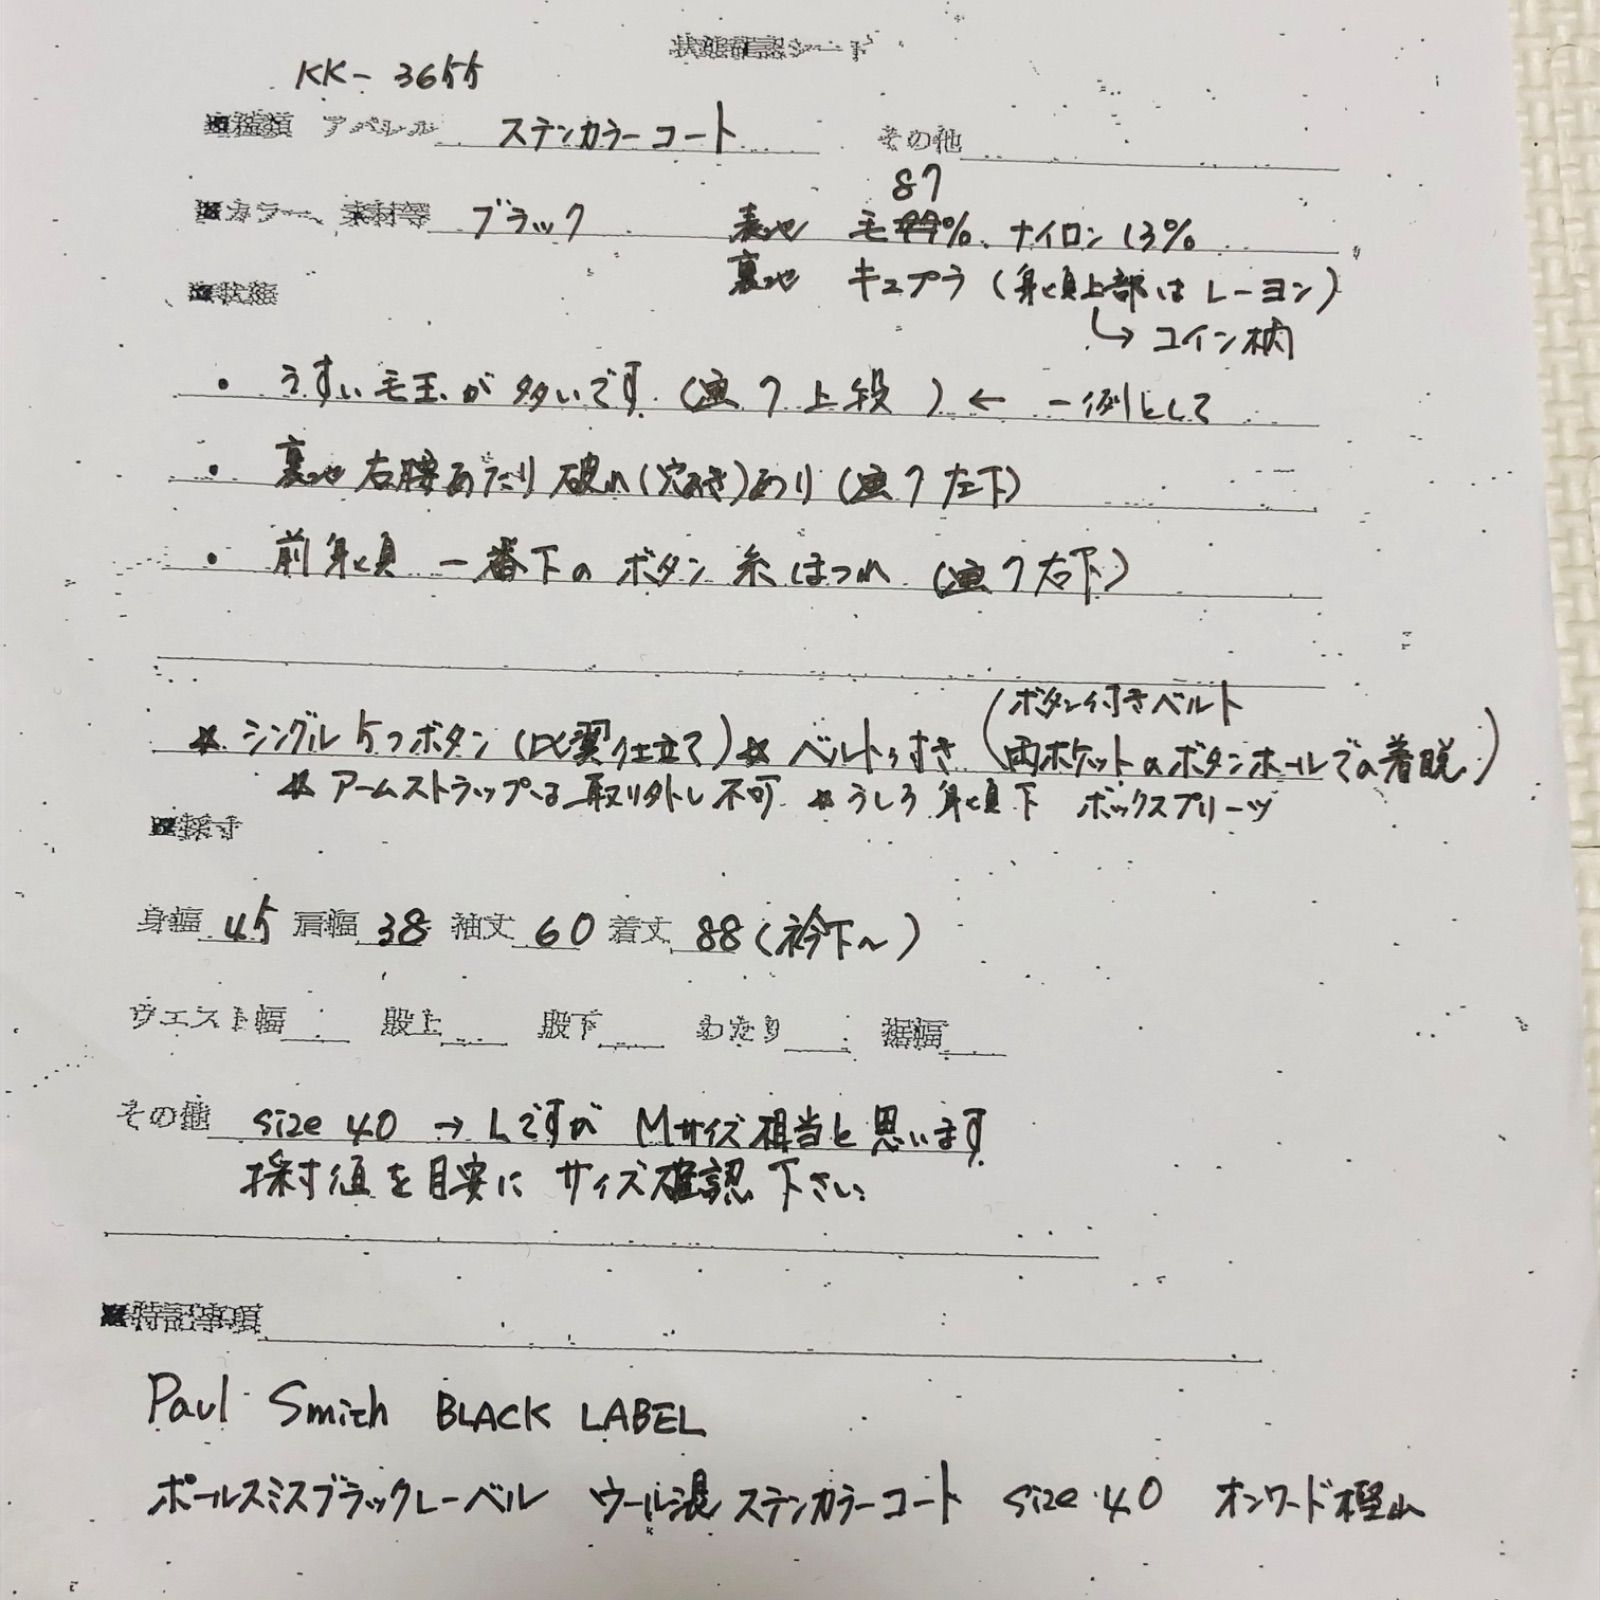 状態確認シート
KK-3655
■種類 アパレル ステンカラーコート その他
87
■カラー、素材等 ブラック 表地 毛%、ナイロン13%
裏地 キュプラ(身頃上部はレーヨン)
■状態
↳ コイン柄
・うすい毛玉が多いです(画7上段)← 一例として
・裏地右腰あたり破れ(穴あき)あり(画7左下)
・前身頃 一番下のボタン糸ほつれ(画7右下)
(ボタン付きベルト
☆シングル5つボタン(比翼仕立て)☆ベルト付き 両ポケットのボタンホールでの着脱)
☆アームストラップは取り外し不可 ☆うしろ身頃下 ボックスプリーツ
■採寸
身幅 45 肩幅 38 袖丈 60 着丈 88(衿下~)
ウエスト幅 股上 股下 わたり 裾幅
その他 size 40 → Lですが Mサイズ相当と思います
採寸値を目安に サイズ確認下さい
■特記事項
Paul Smith BLACK LABEL
ポールスミスブラックレーベル ウール混 ステンカラーコート size 40 オンワード樫山